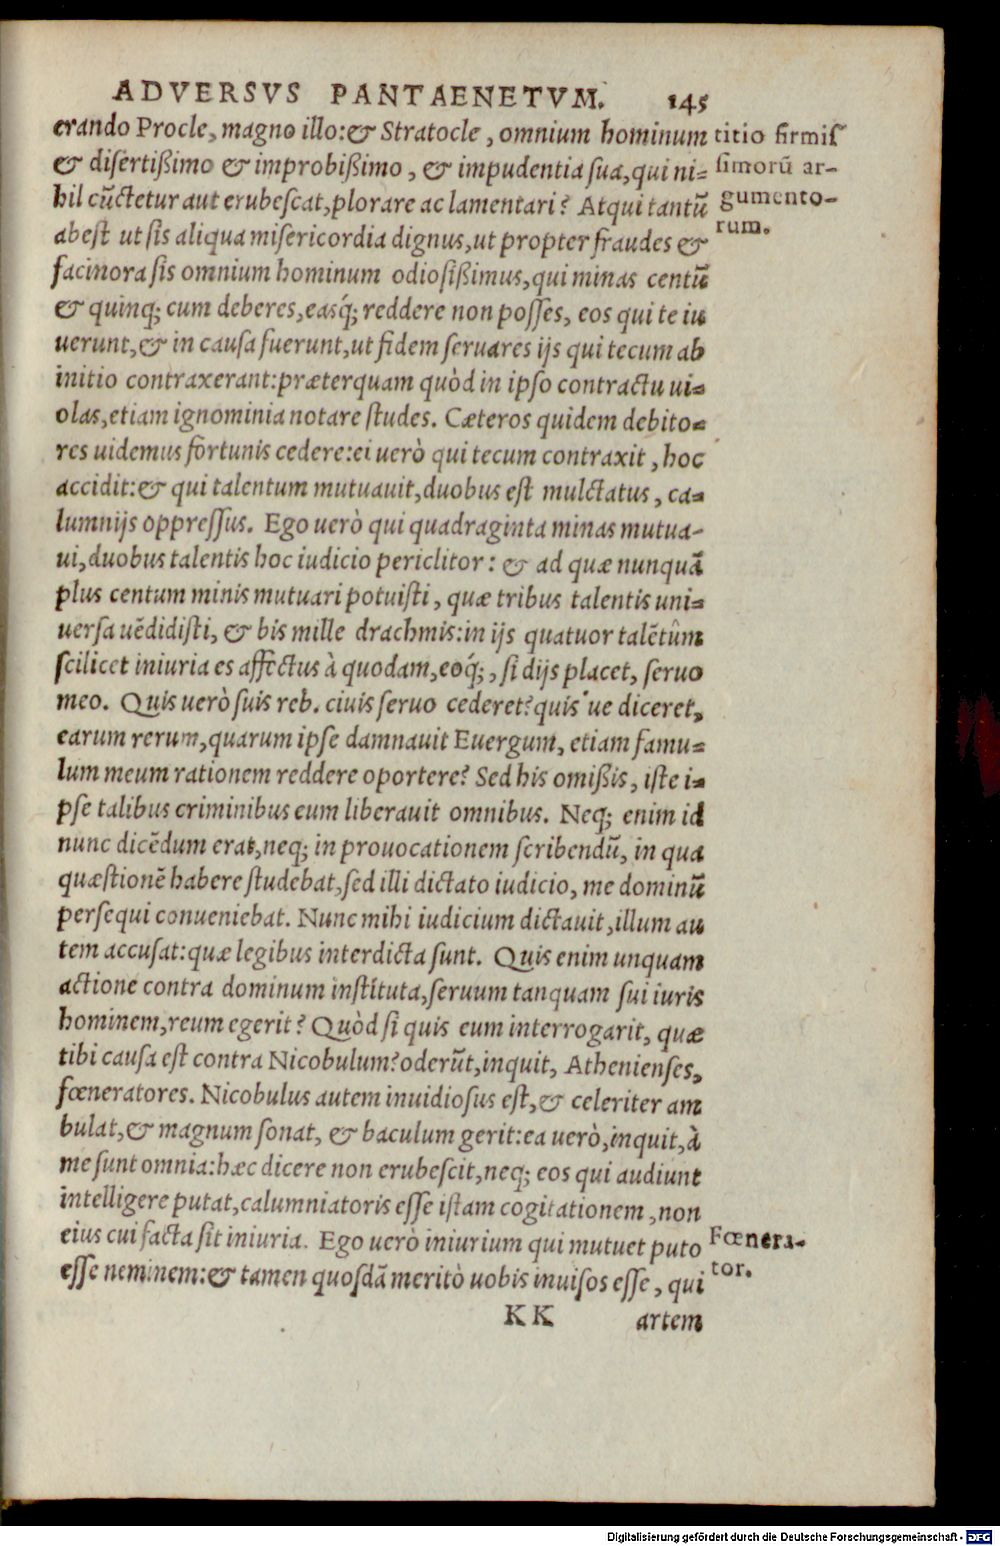 ADVERSVS PANTAENETVM. 145
erando Procle, magno illo:& Stratocle, omnium hominum
& disertißimo & improbißimo, & impudentia sua, qui ni=
hil cũctetur aut erubescat, plorare ac lamentari? Atqui tantũ
abest ut sis aliqua misericordia dignus, ut propter fraudes &
facinora sis omnium hominum odiosißimus, qui minas centũ
& quinq; cum deberes, easq́; reddere non posses, eos qui te iu
uerunt, & in causa fuerunt, ut fidem seruares ijs qui tecum ab
initio contraxerant: præterquam quòd in ipso contractu ui=
olas, etiam ignominia notare studes. Cæteros quidem debito=
res uidemus fortunis cedere: ei uerò qui tecum contraxit, hoc
accidit: & qui talentum mutuauit, duobus est mulctatus, ca=
lumnijs oppressus. Ego uerò qui quadraginta minas mutua-
ui, duobus talentis hoc iudicio periclitor: & ad quæ nunquã
plus centum minis mutuari potuisti, quæ tribus talentis uni=
uersa uẽdidisti, & bis mille drachmis: in ijs quatuor talẽtûm
scilicet iniuria es affectus à quodam, eoq́;, si dijs placet, seruo
meo. Quis uerò suis reb. ciuis seruo cederet? quis ue diceret,
earum rerum, quarum ipse damnauit Euergum, etiam famu=
lum meum rationem reddere oportere? Sed his omißis, iste i=
pse talibus criminibus eum liberauit omnibus. Neq; enim id
nunc dicẽdum erat, neq; in prouocationem scribendũ, in qua
quæstionẽ habere studebat, sed illi dictato iudicio, me dominũ
persequi conueniebat. Nunc mihi iudicium dictauit, illum au
tem accusat: quæ legibus interdicta sunt. Quis enim unquam
actione contra dominum instituta, seruum tanquam sui iuris
hominem, reum egerit? Quòd si quis eum interrogarit, quæ
tibi causa est contra Nicobulum? oderũt, inquit, Athenienses,
fœneratores. Nicobulus autem inuidiosus est, & celeriter am
bulat, & magnum sonat, & baculum gerit: ea uerò, inquit, à
me sunt omnia: hæc dicere non erubescit, neq; eos qui audiunt
intelligere putat, calumniatoris esse istam cogitationem, non
eius cui facta sit iniuria. Ego uerò iniurium qui mutuet puto
esse neminem: & tamen quosdã meritò uobis inuisos esse, qui
KK artem
titio firmis
simorũ ar-
gumento-
rum.
Fœnera-
tor.
Digitalisierung gefördert durch die Deutsche Forschungsgemeinschaft - DFG